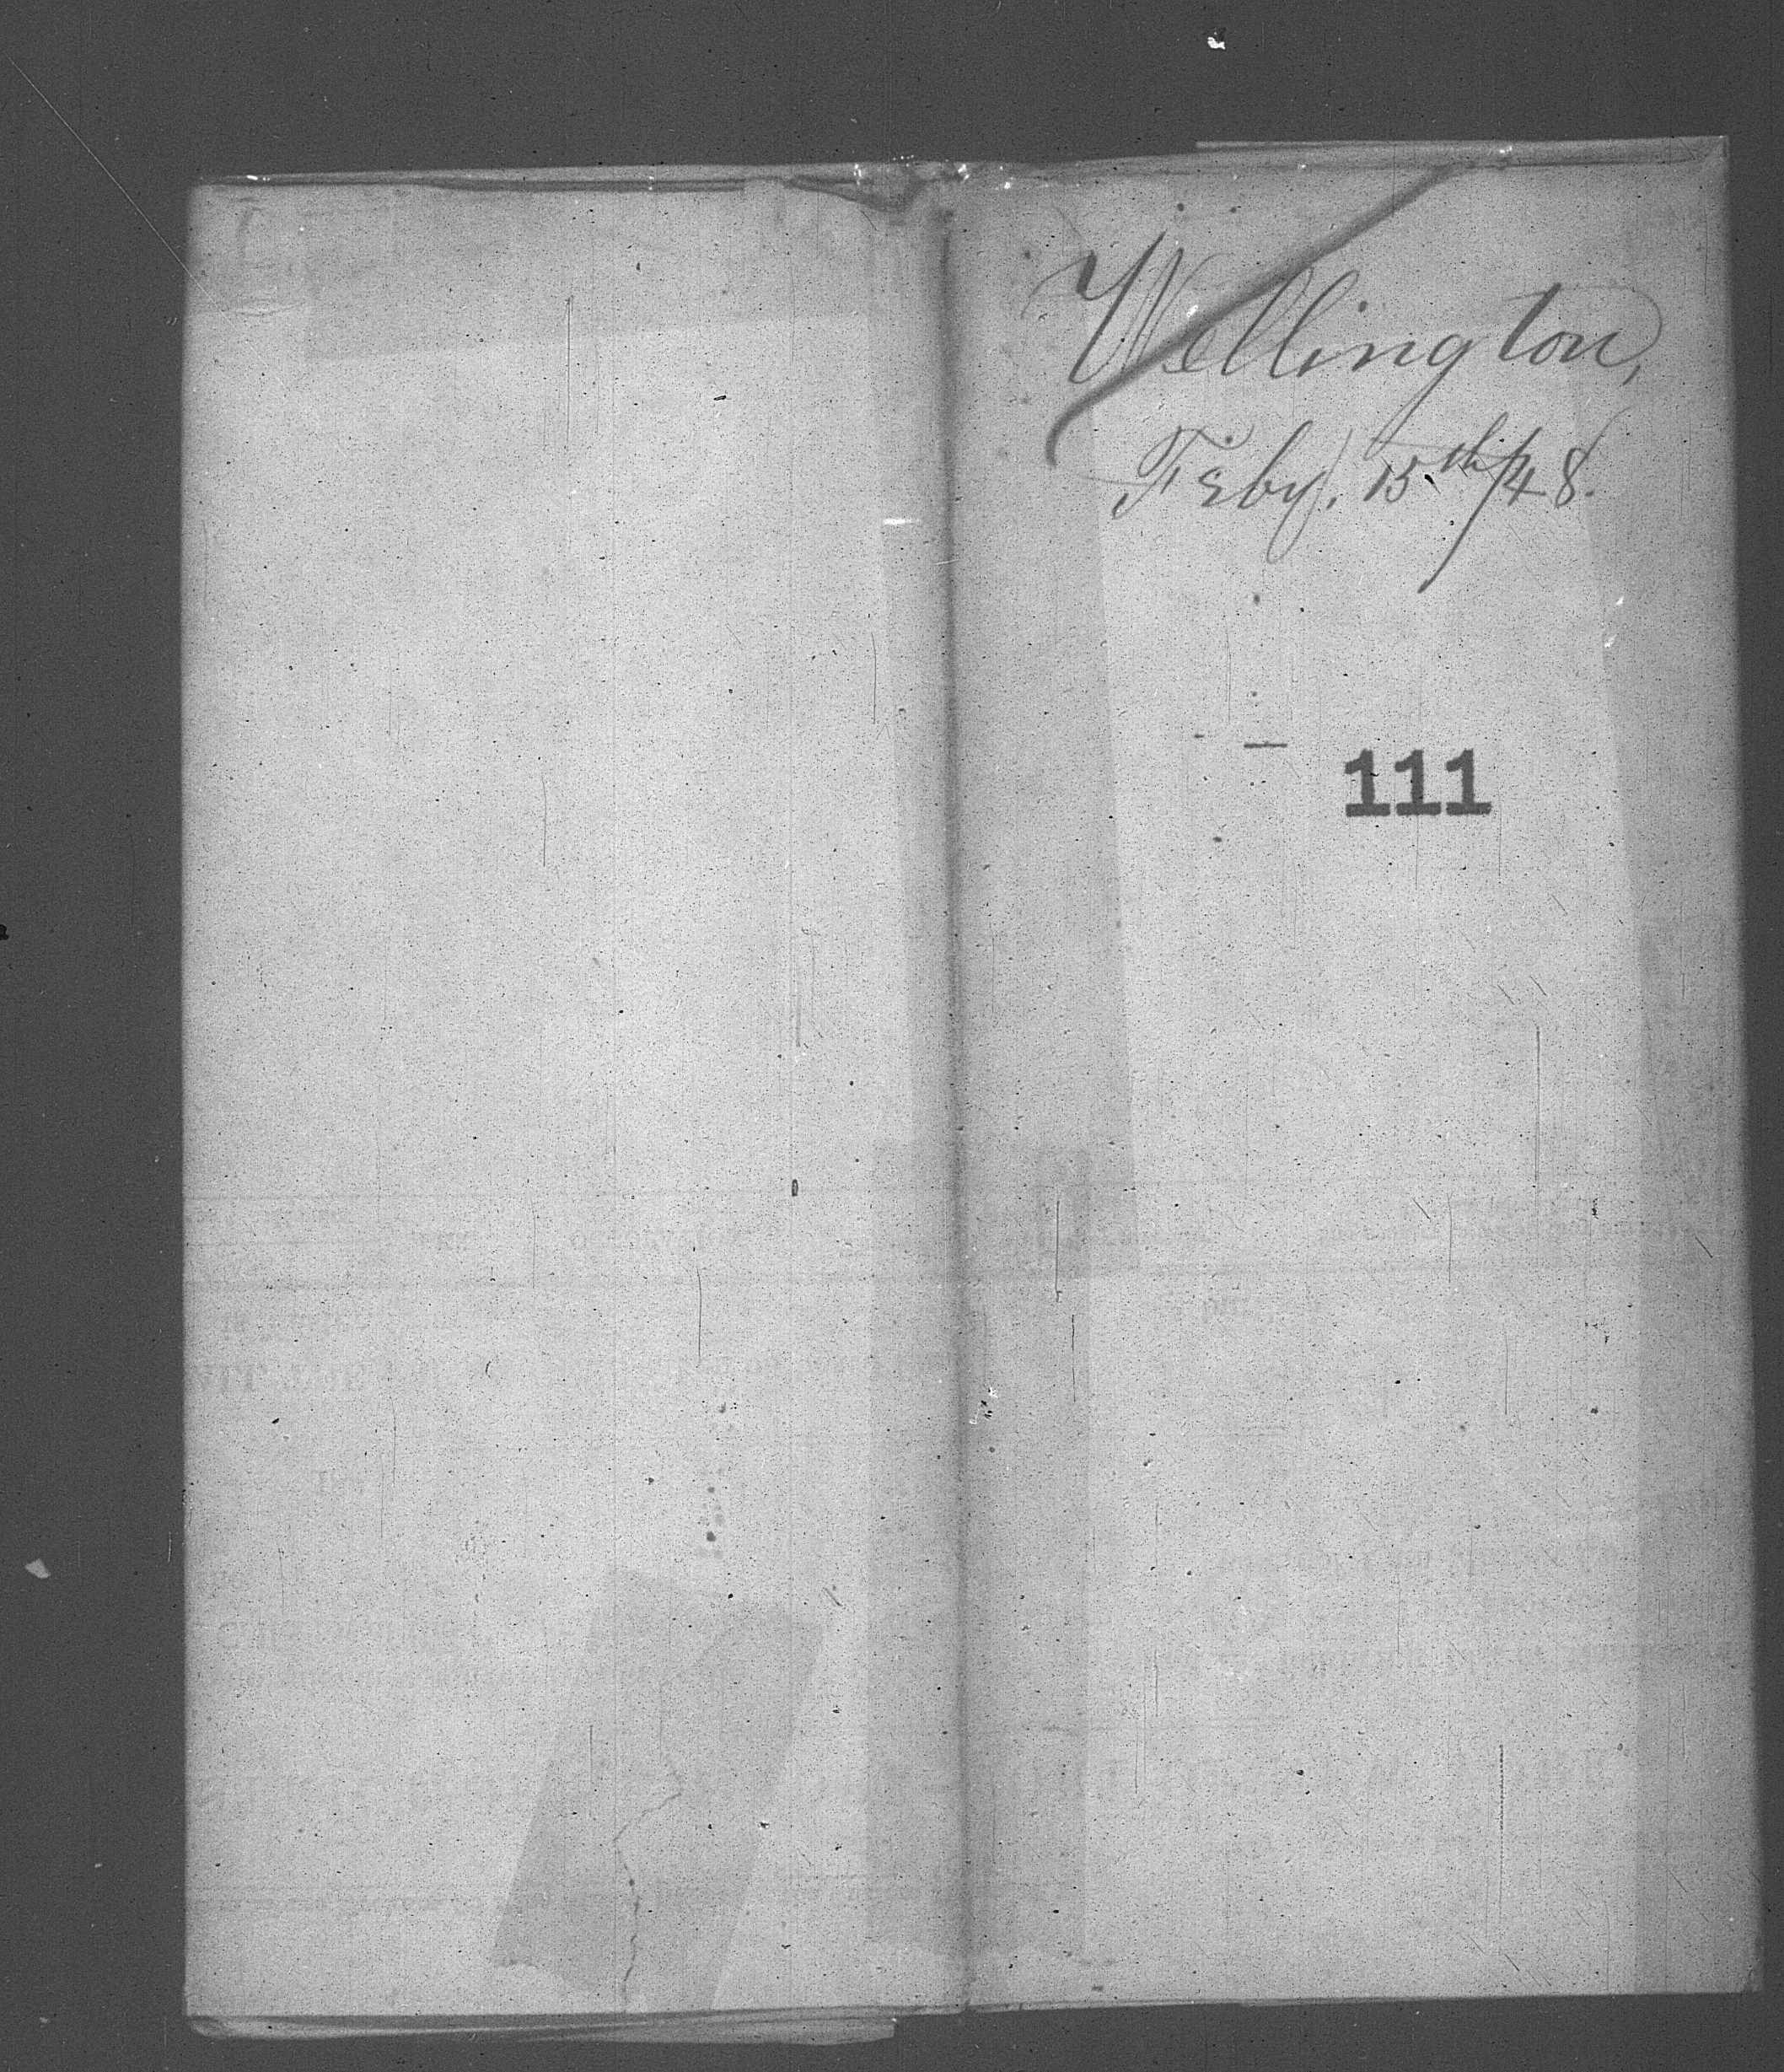 Wellington,
Feby. 15th/48.
111